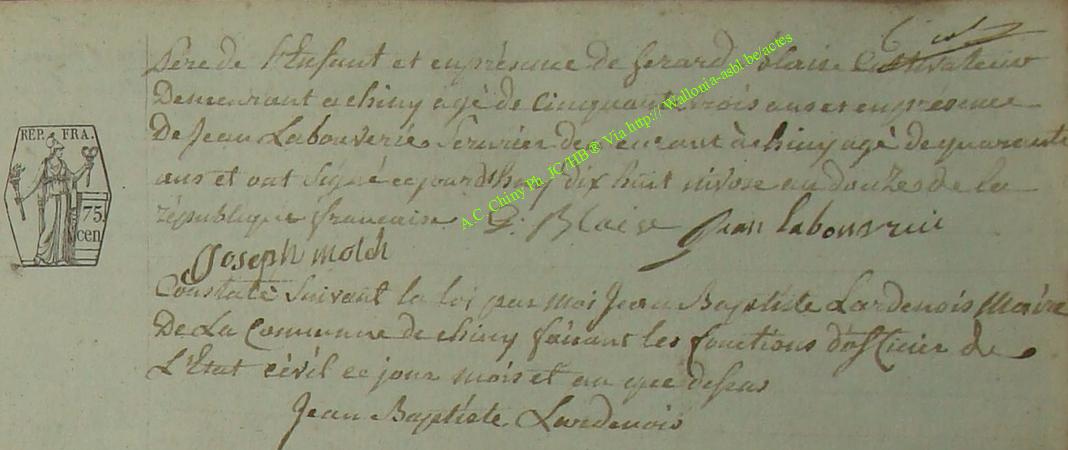 père de l'Enfant et en présence de Gerard Blaise Cultivateur
Demeurant a chiny agé de Cinquante trois ans et en présence
De Jean Labouverie Serurier demeurant à chiny agé de quarente
ans et ont Signé ce jourdhuy dix huit nivose an douze de la
république française G. Blaise Jean labouverie
Joseph molch
Constaté Suivant la loi par moi Jean Baptiste Lardenois Maire
De La Commune de chiny faisant les fonctions d'officier de
L'Etat civil ce jour mois et an que dessus
Jean Baptiste Lardenois
REP. FRA.
75.
cen.
A.C. Chiny Ph. JC/HB® Via http://Wallonia-asbl.be/actes